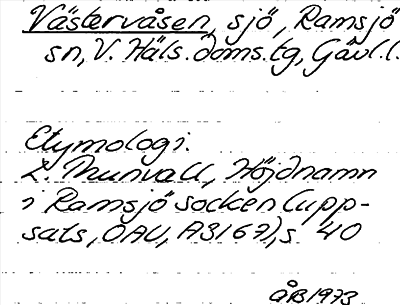 Västervåsen, sjö, Ramsjö
sn, V. Häls. doms.tg, Gävl.l.
Etymologi.
L. Thunvall, Höjdnamn
i Ramsjö socken (upp-
sats, OAU, AS167), s 40
ÅB 1973